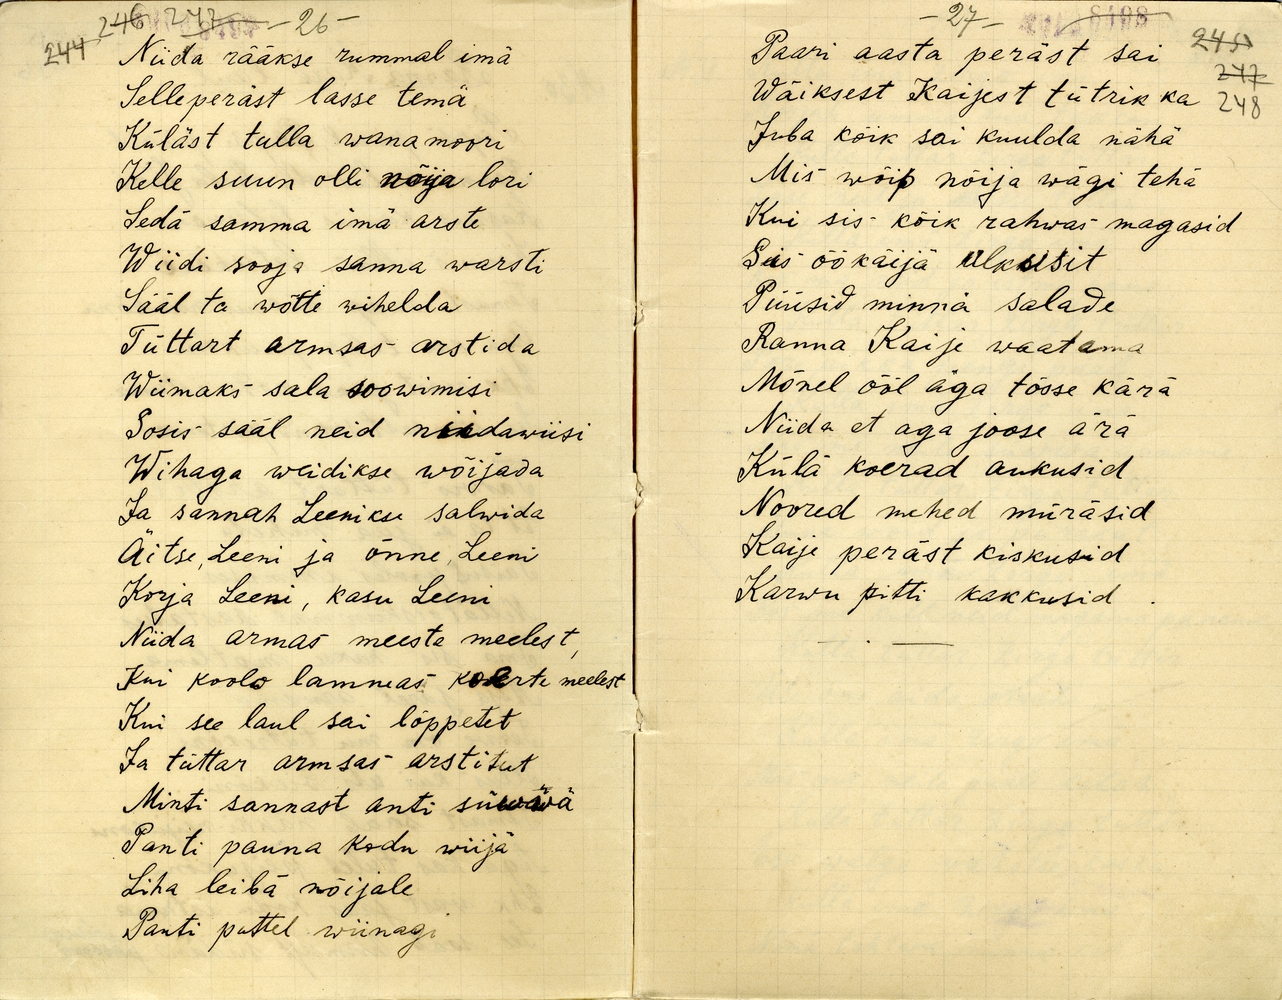 244 246 247 - 26 -
Niida rääkse rummal imä
Selleperäst lasse temä
Küläst tulla wanamoori
Kelle suun olli nõija lori
Sedä samma imä arste
Wiidi sooja sanna warsti
Sääl ta wõtte wihelda
Tüttart armsas arstida
Wiimaks sala soowimisi
Sosis sääl neid niidawiisi
Wihaga weidikse wõijada
Ja sannah Leenikse salwida
Äitse, Leeni ja õnne, Leeni
Korja Leeni, kasu Leeni
Niida armas meeste meelest,
Kui koolo lamneas koerte meelest
Kui see laul sai lõppetet
Ja tüttar armsas arstitut
Minti sannast anti süwwä
Panti pauna kodu wiijä
Liha leibä nõijale
Panti puttel wiinagi
- 27 -
245
247
248
Paari aasta peräst sai
Wäiksest Kaijest tütrikka
Juba kõik sai kuulda nähä
Mis wõip nõija wägi tehä
Kui sis kõik rahwas magasid
Siis öökäijä ulkusit
Püüsid minnä salade
Ranna Kaije waatama
Mõnel ööl äga tõsse kärä
Niida et aga joose ärä
Külä koerad aukusid
Noored mehed müräsid
Kaije peräst kiskusid
Karwu pitti kakkusid.